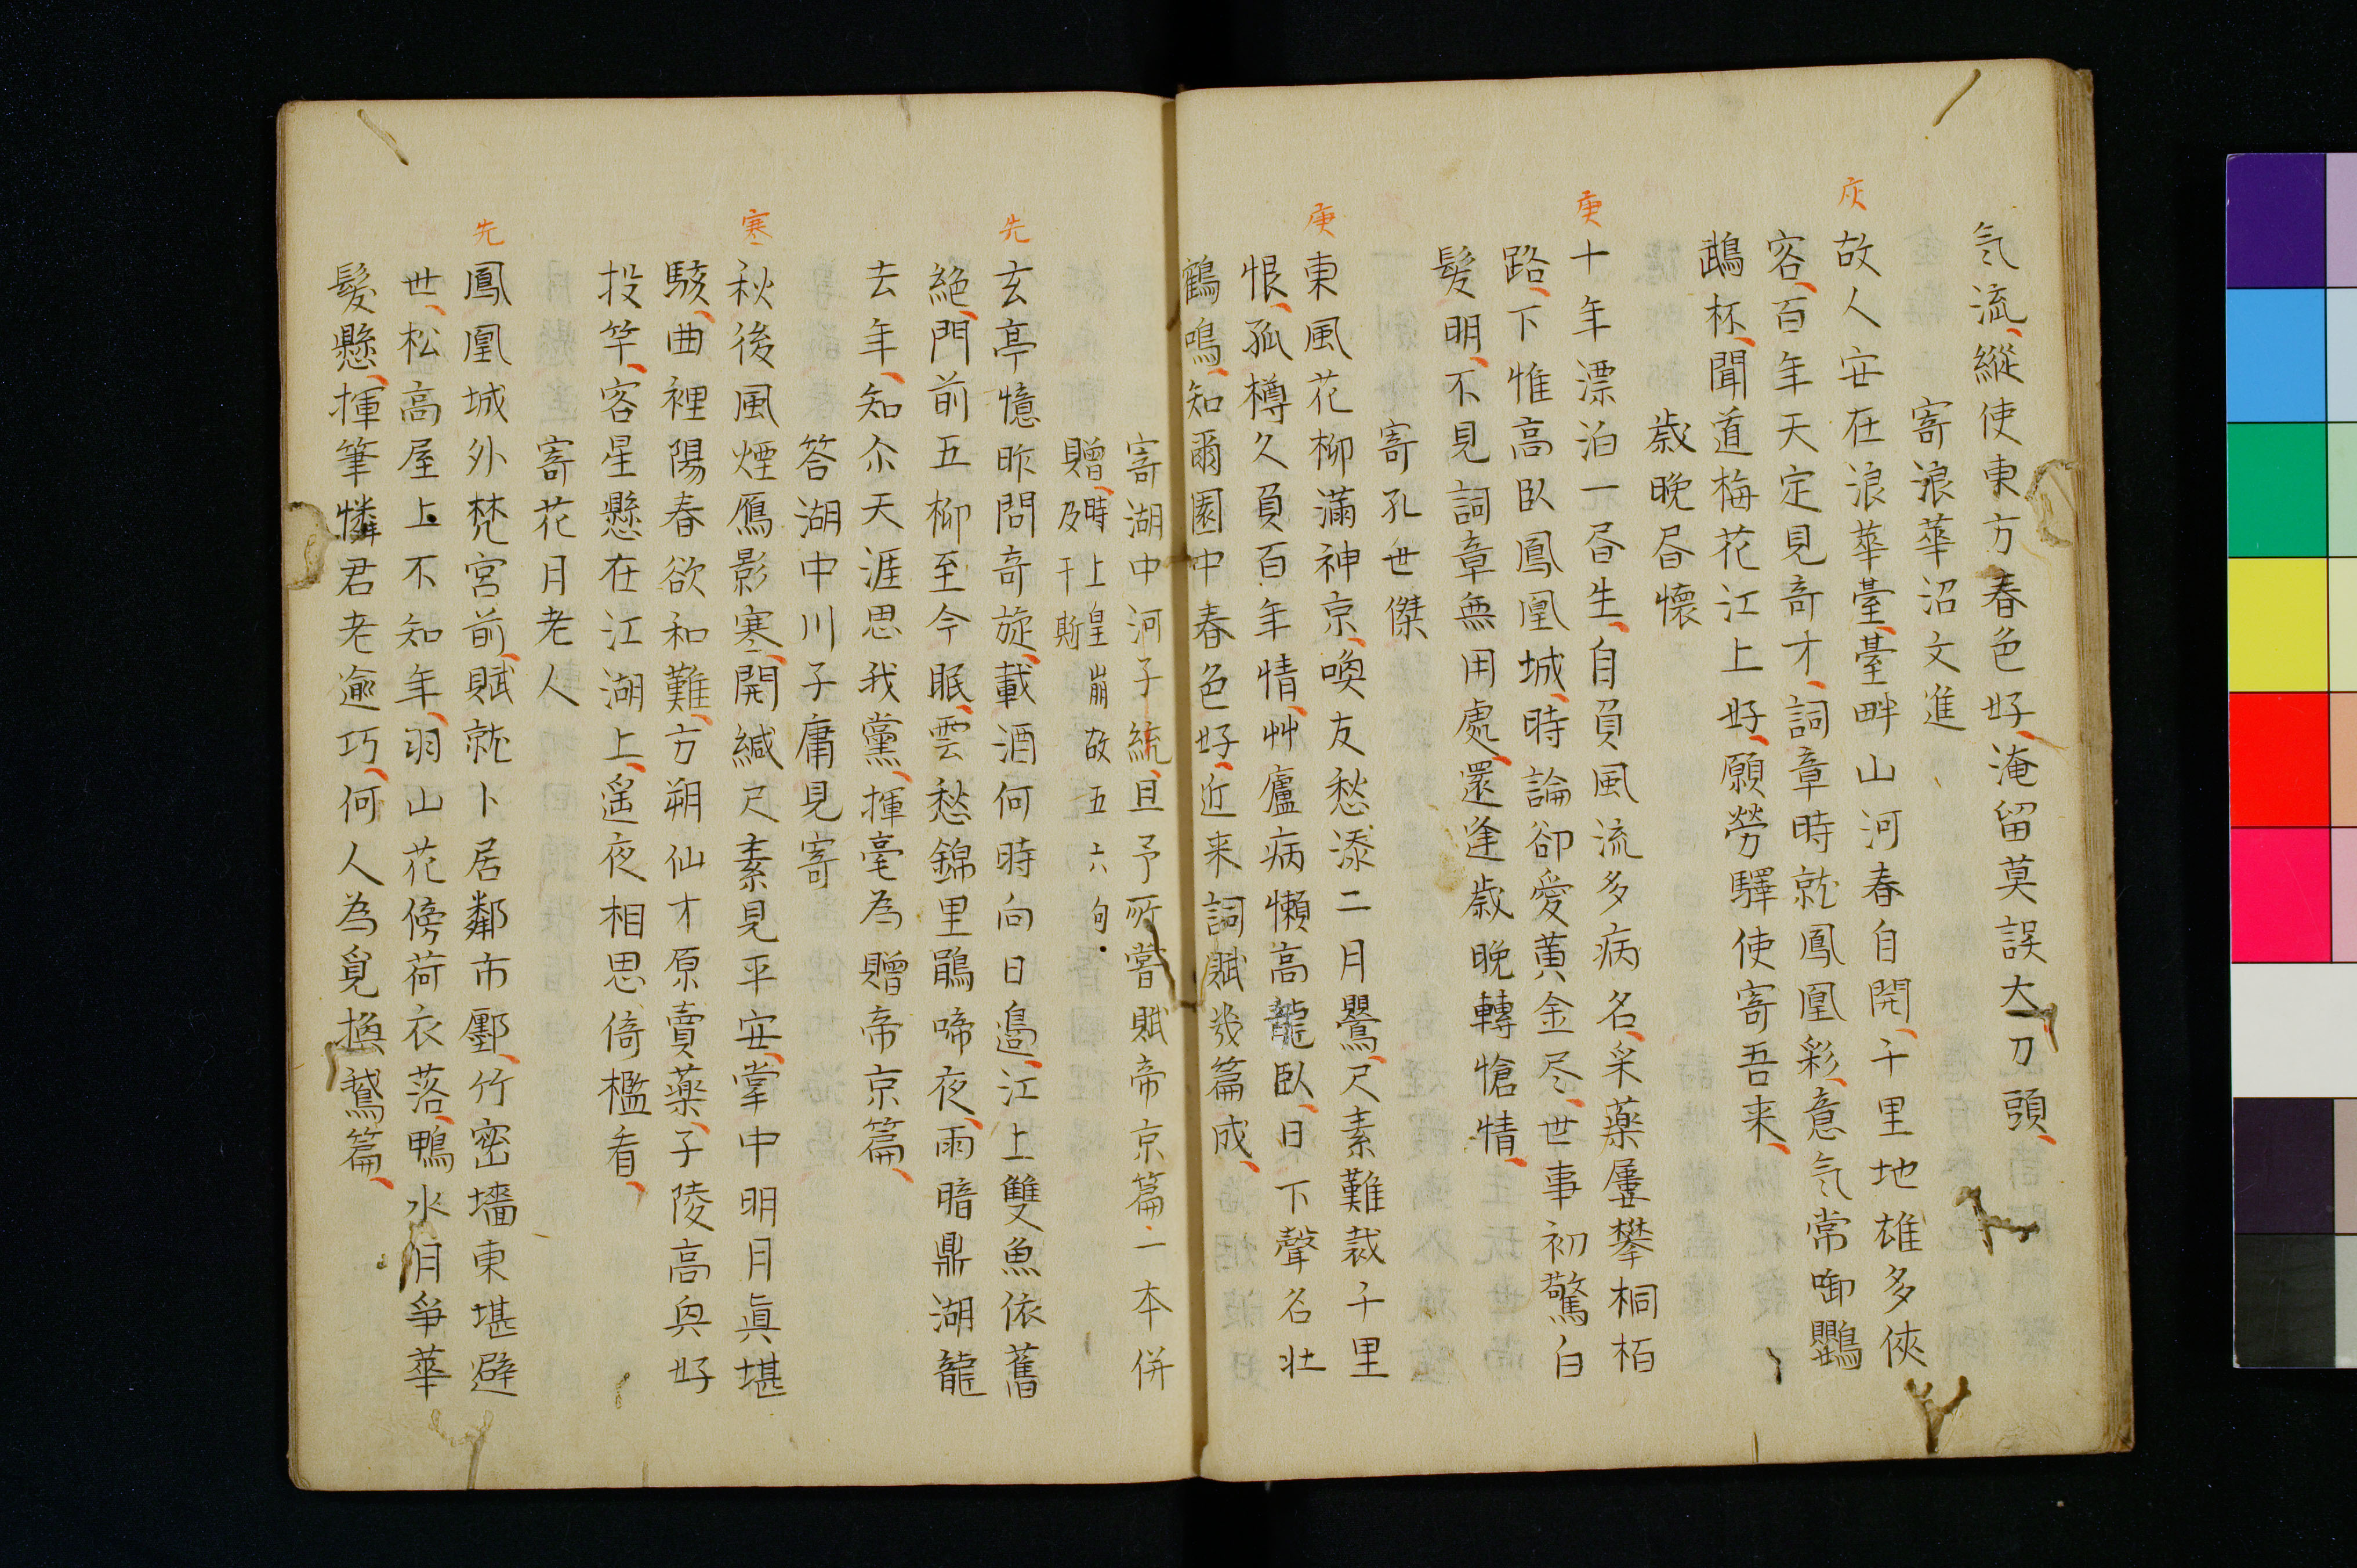 気流縦使東方春色好淹留莫誤大刀頭
寄浪華沼文進
灰
故人安在浪華臺臺畔山河春自開千里地雄多俠
客百年天定見奇才詞章時就鳳凰彩意気常啣鸚
鵡杯聞道梅花江上好願勞驛使寄吾来
歳晩居懷
庚
十年漂泊一昏生自負風流多病名采薬屢攀桐栢
路下惟高臥鳳凰城時論卻愛黄金尽世事初驚白
髪明不見詞章無用處還逢歳晩轉愴情
寄孔世傑
庚
東風花柳滿神京喚友愁添二月鶯尺素難裁千里
恨孤樽久負百年情艸廬病懶高龍臥日下聲名壮
鶴鳴知爾園中春色好近来詞賦幾篇成
寄湖中河子統且予所嘗賦帝京篇一本併
贈時上皇崩故五六句
及于斯
先
玄亭憶昨問奇旋載酒何時向日邉江上雙魚依舊
絶門前五柳至今眠雲愁錦里鵑啼夜雨暗鼎湖龍
去年知尒天涯思我黨揮毫為贈帝京篇
答湖中川子庸見寄
寒
秋後風煙鴈影寒開緘尺素見平安掌中明月眞堪
駭曲裡陽春欲和難方朔仙才原賣薬子陵高興好
投竿客星懸在江湖上遥夜相思倚檻看
寄花月老人
先
鳳凰城外梵宮前賦就卜居鄰市鄽竹密墻東堪避
世松高屋上不知年羽山花傍荷衣落鴨水月爭華
髪懸揮筆憐君老逾巧何人為覓換鵞篇